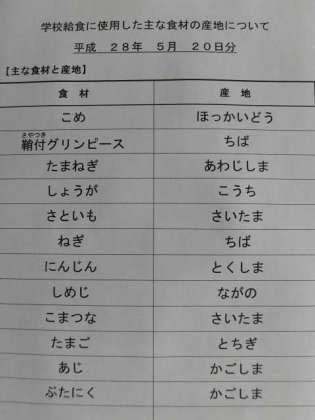 学校給食に使用した主な食材の産地について
平成　２８年　５月　２０日分
【主な食材と産地】
食　材　産　地
こめ　ほっかいどう
さやつき
鞘付グリンピース　ちば
たまねぎ　あわじしま
しょうが　こうち
さといも　さいたま
ねぎ　ちば
にんじん　とくしま
しめじ　ながの
こまつな　さいたま
たまご　とちぎ
あじ　かごしま
ぶたにく　かごしま